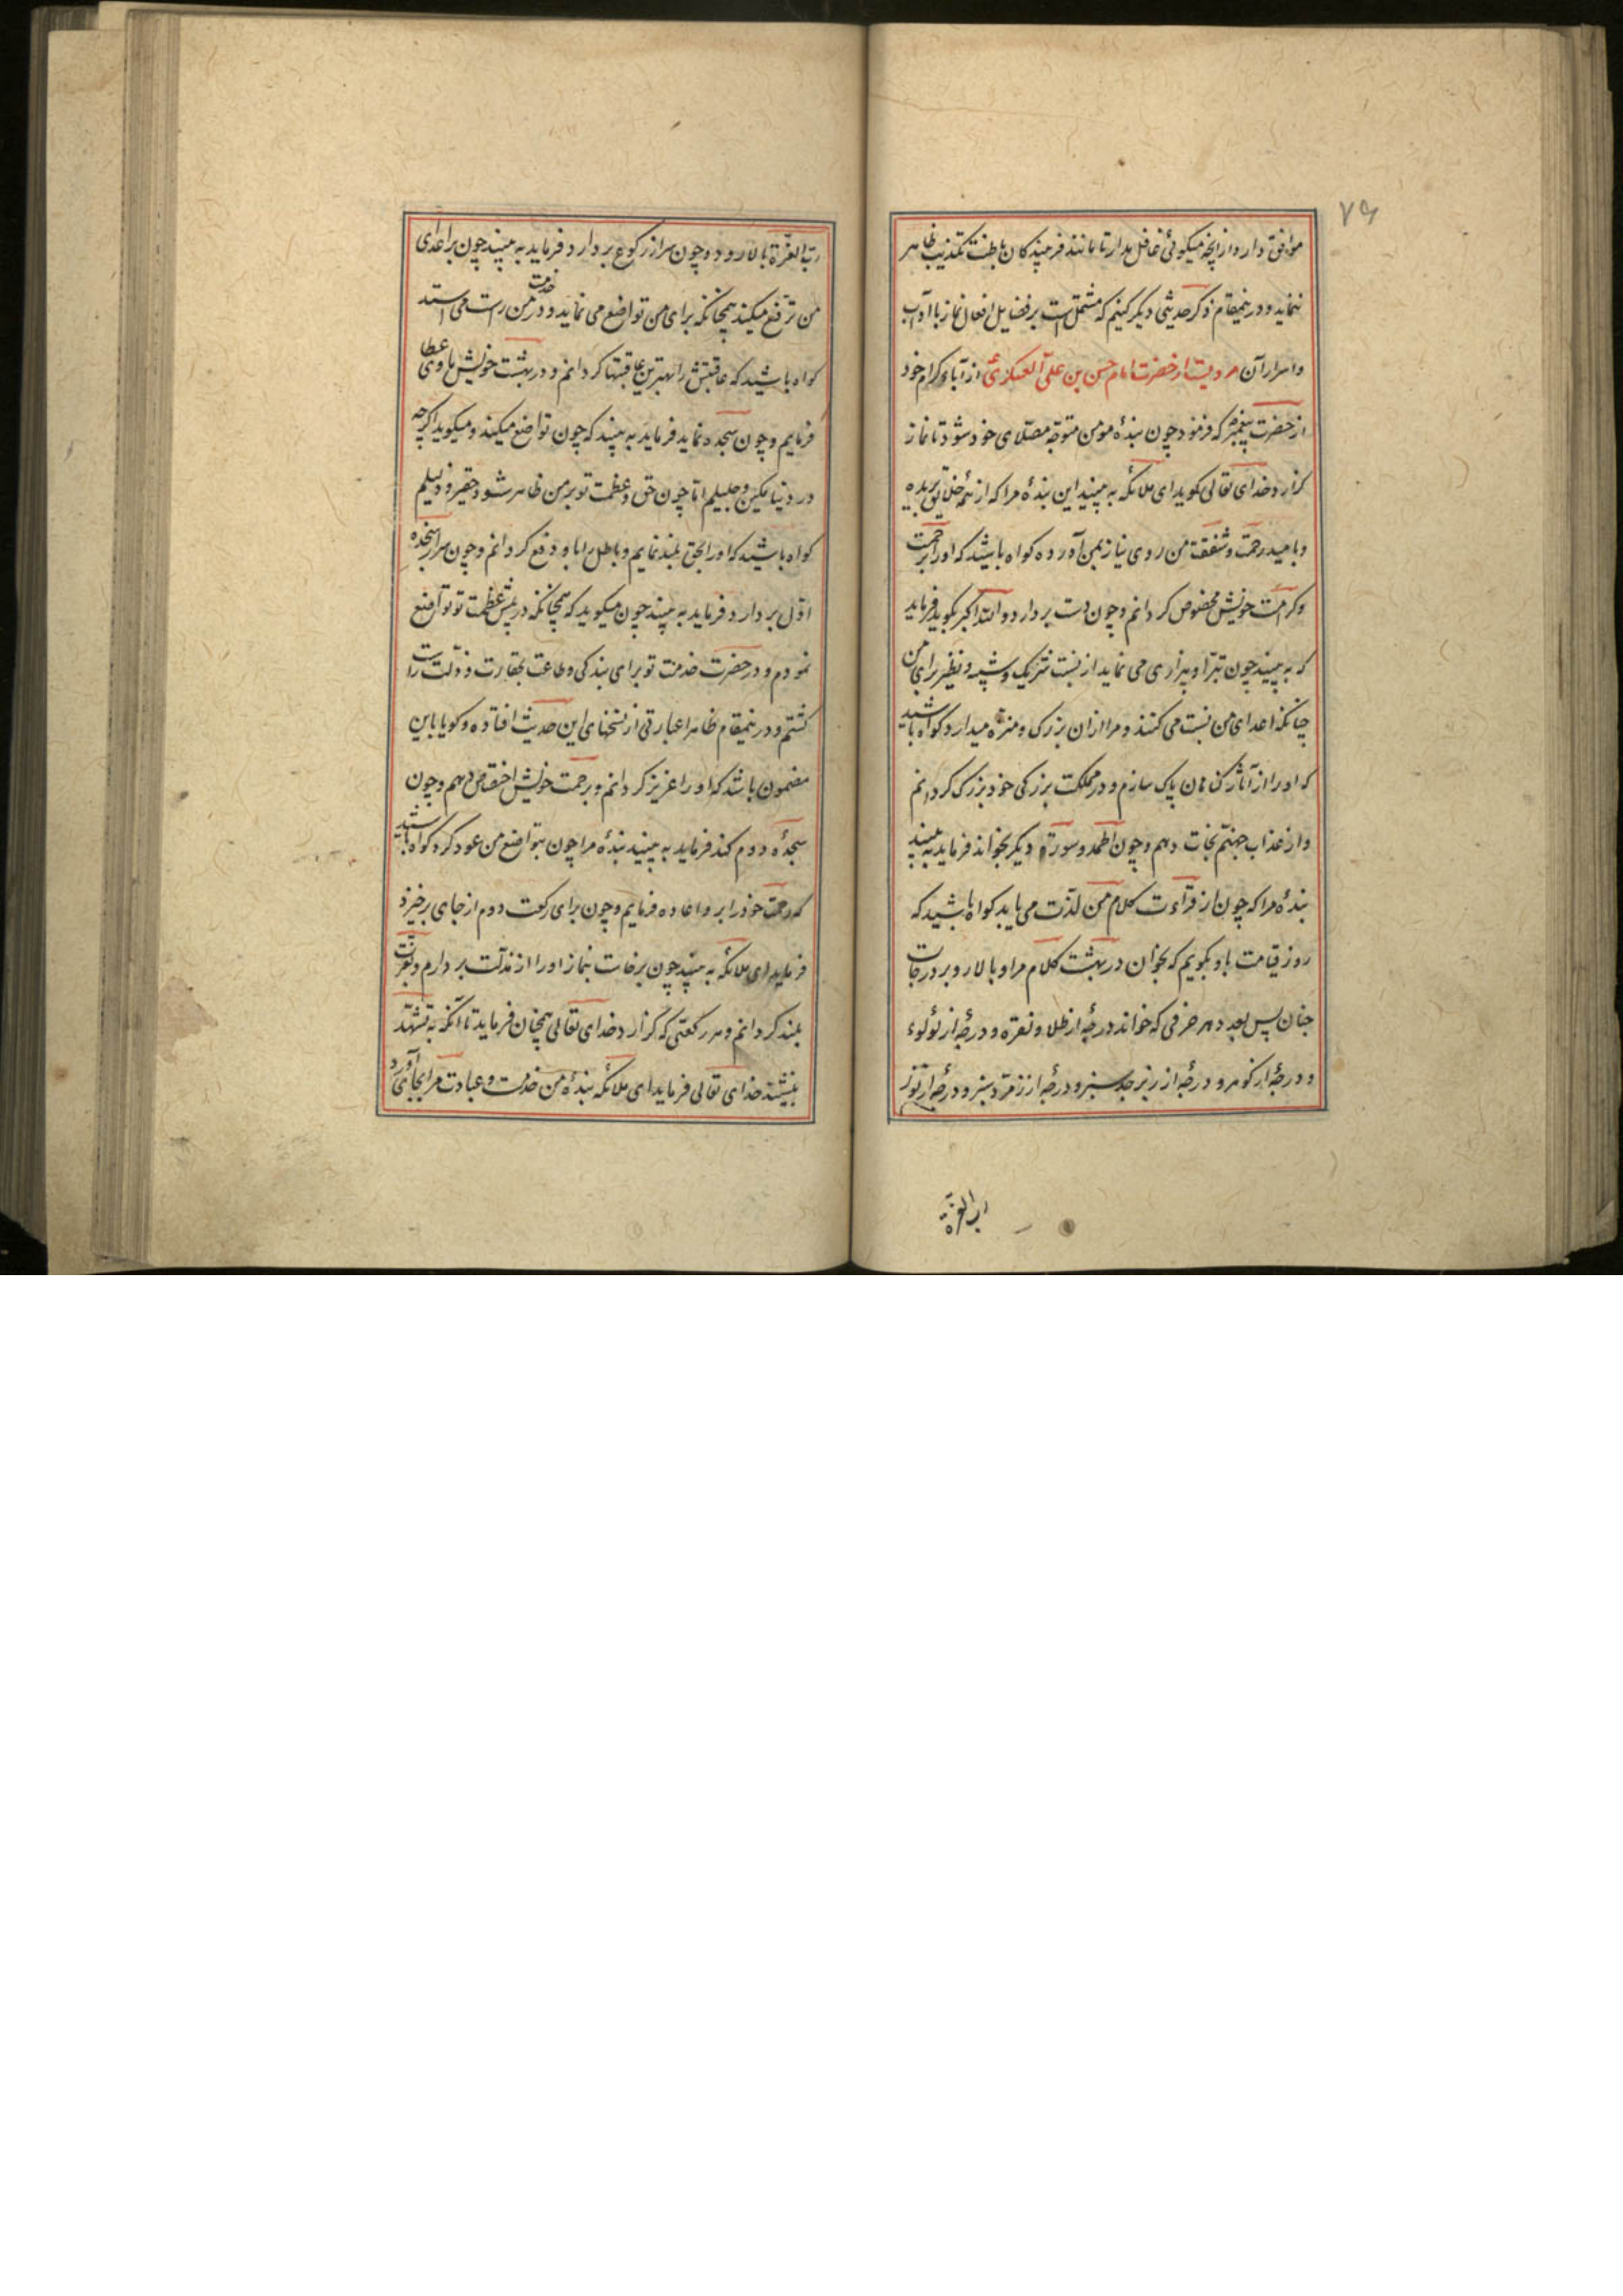 ۷۶
موافق دار و از انچه میکوئی غافل مدار تا مانند فرمیند کان باطنت تکذیب ظاهر
ننماید و درینمقام ذکر حدیثی دیکر کنیم که مشتمل است بر فضایل افعال نماز با آداب
و اسرار آن مرویست از حضرت امام حسن بن علی العسکری از آباء کرام خود
از حضرت پیغمبر که فرمود چون بندهٔ مومن متوجه مصلّای خود شود تا نماز
کزارد خدای تعالی کوید ای ملائکه به بینید این بندهٔ مرا که از همهٔ خلایق بریده
و بامید رحمت و شفقت من روی نیاز بمن آورده کواه باشید که او را برحمت
و کرامت خویش مخصوص کردانم و چون دست بردارد و الله اکبر بکوید فرماید
که به بینید چون تبرّا و بیزاری می نماید از نسبت شریک و شبیه و نظیر برای من
چنانکه اعدای من نسبت می کنند و مرا ازان بزرک و منزه میدارد کواه باشید
که او را از آثار کناهان پاک سازم و در مملکت بزرکی خود بزرک کردانم
و از عذاب جهنّم نجات دهم و چون الحمد و سورهٔ دیکر بخواند فرماید به بینید
بندهٔ مرا که چون از قرآءت کلام من لذّت می یابد کواه باشید که
روز قیامت باو بکویم که بخوان در بهشت کلام مرا و بالا رو بر درجات
جنان پس بعدد هر حرفی که خواند درجهٔ از طلا و نقره و درجهٔ از لؤلوء
و درجهٔ از کوهر و درجهٔ از زبرجد سبز و درجهٔ از زمرّد سبز و درجهٔ از نور
رب العزّة
ربّ العزّة بالا رود و چون سر از رکوع بردارد فرماید به بینید چون بر اعدای
من ترفّع میکند همچنانکه برای من تواضع می نماید و در خدمت من راست می استد
کواه باشید که عاقبتش را بهترین عاقبتها کردانم و در بهشت خویش ماوی عطا
فرمایم و چون سجده نماید فرماید به بینید که چون تواضع میکند و میکوید اکرچه
در دنیا مکین و جلیلم امّا چون حق و عظمت تو بر من ظاهر شود حقیر و ذلیلم
کواه باشید که او را بحق بلند نمایم و باطل را باو دفع کردانم و چون سر از سجدهٔ
اوّل بردارد فرماید به بینید چون میکوید که همچنانکه در پیش عظمت تو تواضع
نمودم و در حضرت خدمت تو برای بندکی و طاعت بحقارت و ذلّت راست
کشتم و درینمقام ظاهرا عبارتی از نسخهای این حدیث افتاده و کویا باین
مضمون باشد که او را عزیز کردانم و برحمت خویش اختصاص دهم و چون
سجدهٔ دوم کند فرماید به بینید بندهٔ مرا چون بتواضع من عود کرد کواه باشید
که رحمت خود را برو اعاده فرمایم و چون برای رکعت دوم از جای برخیزد
فرماید ای ملائکه به بینید چون برخاست بنماز او را از مذلّت بردارم و بعزّت
بلند کردانم و هر رکعتی که کزارد خدای تعالی همچنان فرماید تا آنکه به تشهّد
بنشیند خدای تعالی فرماید ای ملائکه بندهٔ من خدمت و عبادت مرا بجای آورد